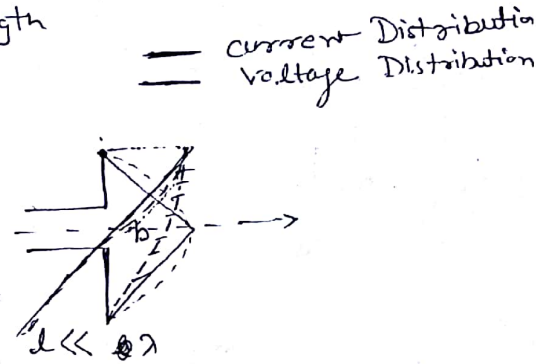 gth
current Distributio
voltage Distribution
l << λ